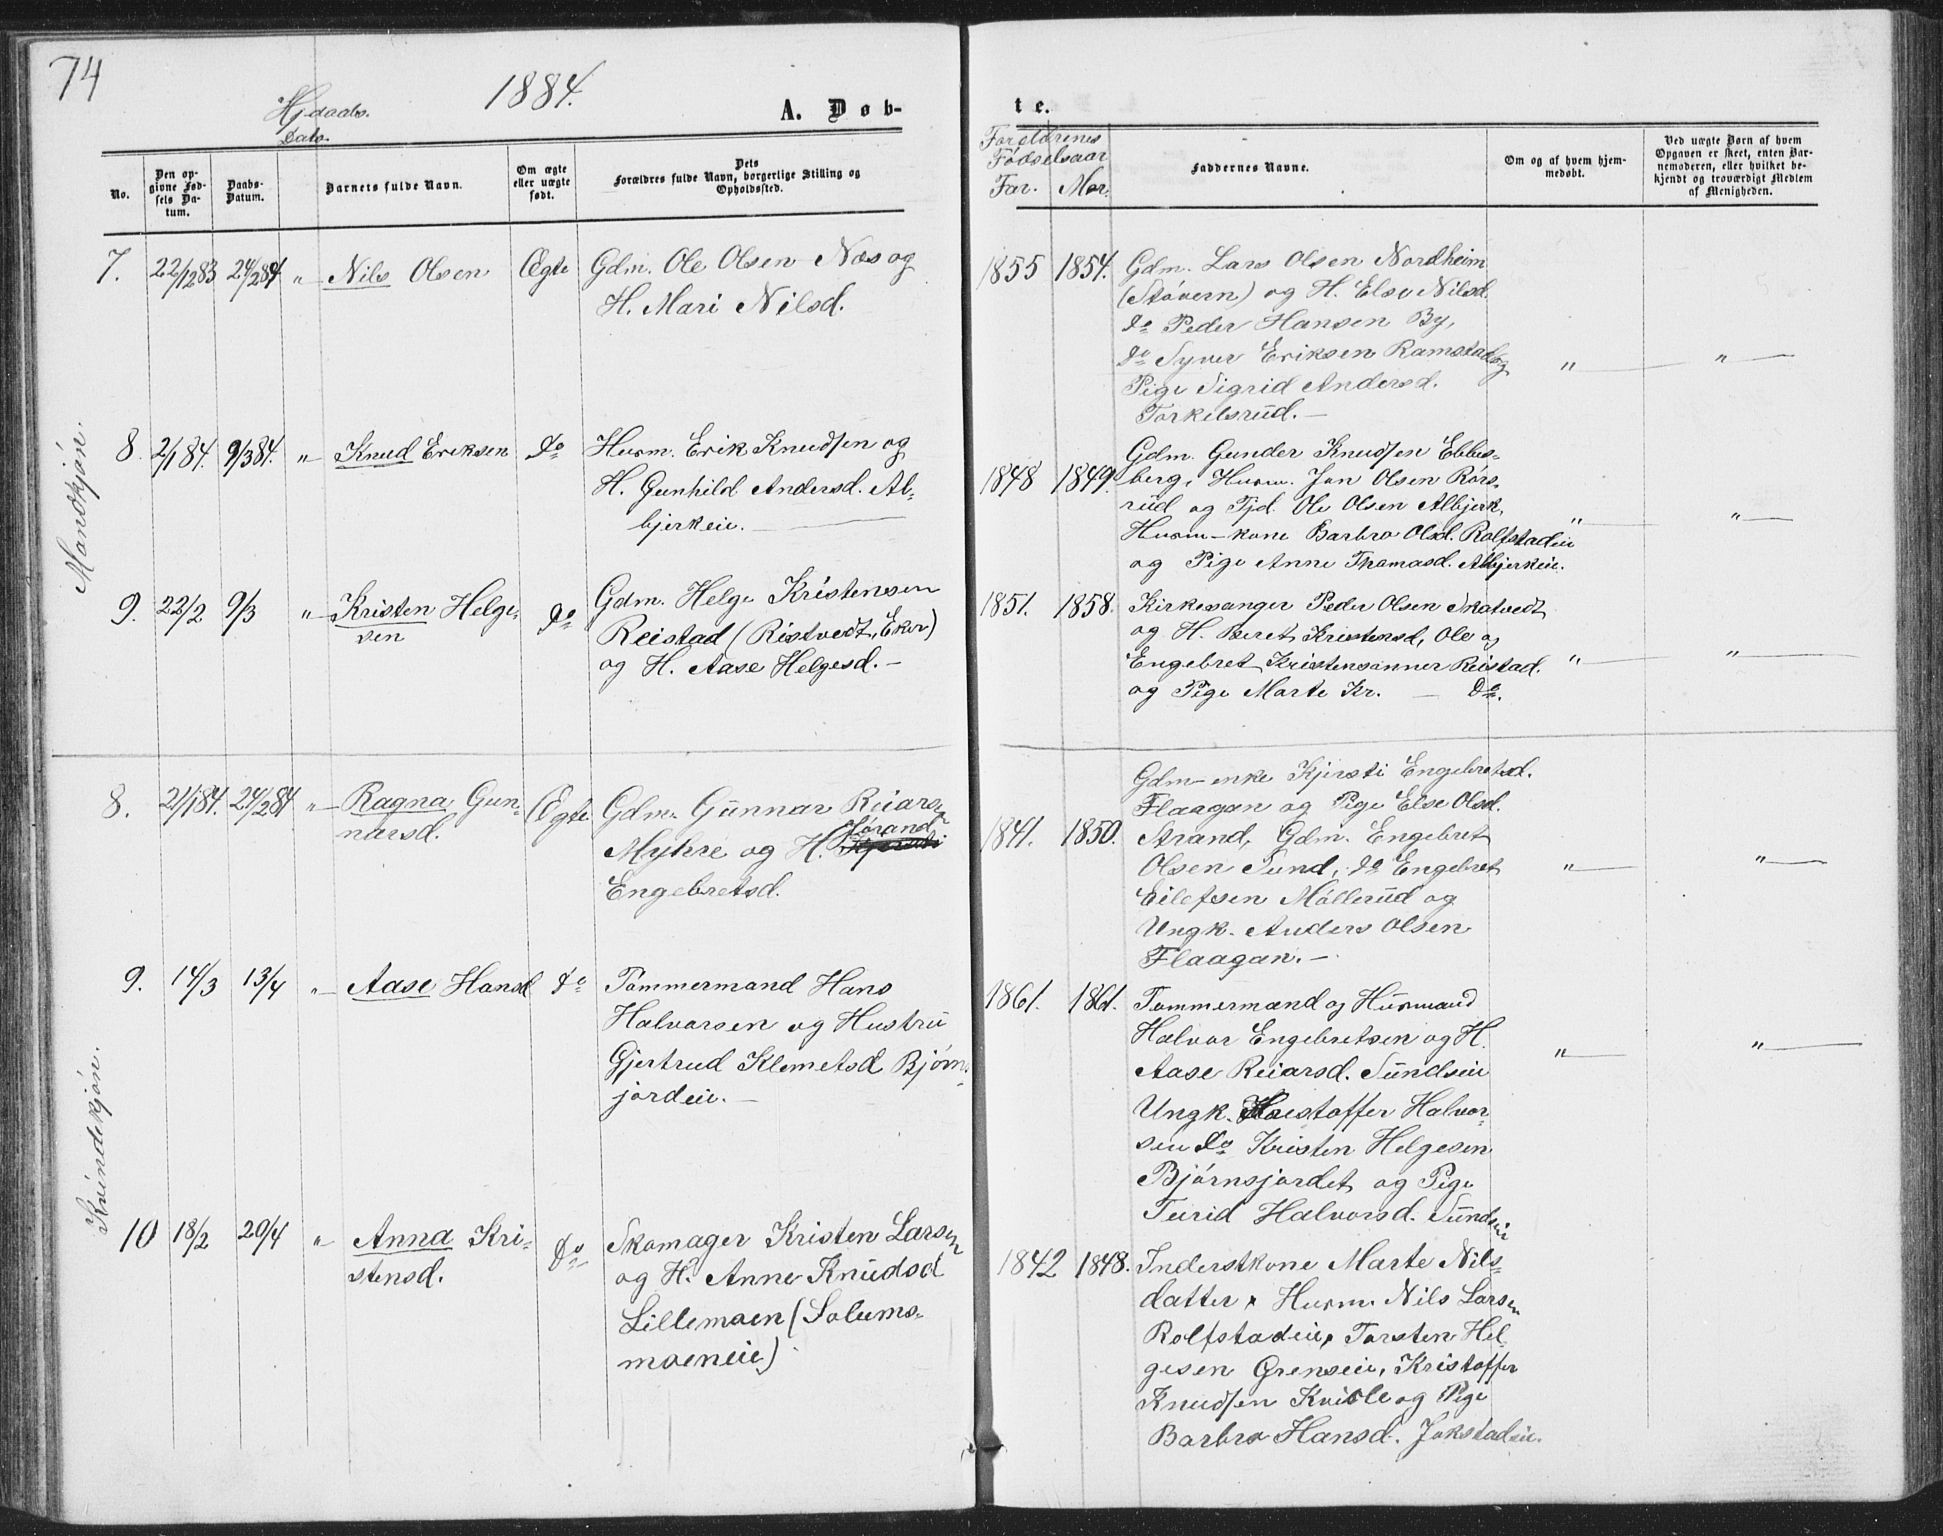 74
1884.
Hjdaabs.
Dato
A. Døb-
te.
No.
Den op-
givne Fød-
sels Da-
tum.
Daabs-
Datum.
Barnets fulde Navn.
Om ægte
eller uægte
født.
Dets
Forældres fulde Navn, borgerlige Stilling og
Opholdssted.
Forældrenes
Fødselsaar
Far. Mor.
Faddernes Navne.
Om og af hvem hjem-
medøbt.
Ved uægte Børn af hvem
Opgaven er skeet, enten Bar-
nemoderen, eller hvilket be-
kjendt og troværdigt Medlem
af Menigheden.
Mandkjøn.
7. 22/12 83 24/2 84 " Nils Olsen Ægte Gdm. Ole Olsen Næs og
H. Mari Nilsd.
1855 1854. Gdm. Lars Olsen Nordheim
(Støvern) og H. Else Nilsd.
do Peder Hansen By,
do Syver Eriksen Ramstad og " "
Pige Sigrid Andersd.
Torkelsrud.
8. 2/1 84. 9/3 84. " Knud Eriksen do Husm. Erik Knudsen og
H. Gunhild Andersd. Al-
bjerkeie.
1848 1849. Gdm. Gunder Knudsen Ebbes-
berg, Husm. Jon Olsen Rørs-
rud og Tjd. Ole Olsen Albjerk,
Husm-kone Barbro Olsd. Rolfstadeie " "
og Pige Anne Thomasd. Albjerkeie.
9. 22/2 9/3 " Kristen Helge-
sen do Gdm. Helge Kristensen
Reistad (Ristvedt, Eker)
og H. Aase Helgesd.
1851. 1858. Kirkesanger Peder Olsen Skatvedt
og H. Beret Kristensd, Ole og
Engebret Kristensønner Reistad. " "
og Pige Marte Kr. do.
Kvindekjøn.
8. 21/1 84. 24/2 84 " Ragna Gun-
narsd. Ægte Gdm. Gunnar Reiarsen
Jørand
Myhre og H. Kjersti
Engebretsd.
1841. 1850. Gdm-enke Kjersti Engebretsd.
Flaagan og Pige Else Olsd.
Strand, Gdm. Engebret
Olsen Sund, do Engebret " "
Eilefsen Møllerud og
Ungk. Anders Olsen
Flaagan.
9. 14/3 13/4 " Aase Hansd do Tømmermand Hans
Halvorsen og Hustru
Gjertrud Klemetsd Bjørns-
jordeie.
1861. 1861. Tømmermand og Husmand
Halvor Engebretsen og H.
Aase Reiarsd. Sundseie " "
Ungk. Kristoffer Halvor-
sen do Kristen Helgesen
Bjørnsjordet og Pige
Turid Halvorsd. Sundseie
10 18/2 20/4 " Anna Kri-
stensd. do Skomager Kristen Larsen
og H. Anne Knudsd
Lillemoen (Solums-
moeneie)
1842 1848. Inderstkone Marte Nils-
datter, Husm. Nils Larsen
Rolfstadeie, Torsten Hel-
gesen Grenseie, Kristoffer
Knudsen Kvisle og Pige
Barbro Hansd. Jokstadeie.